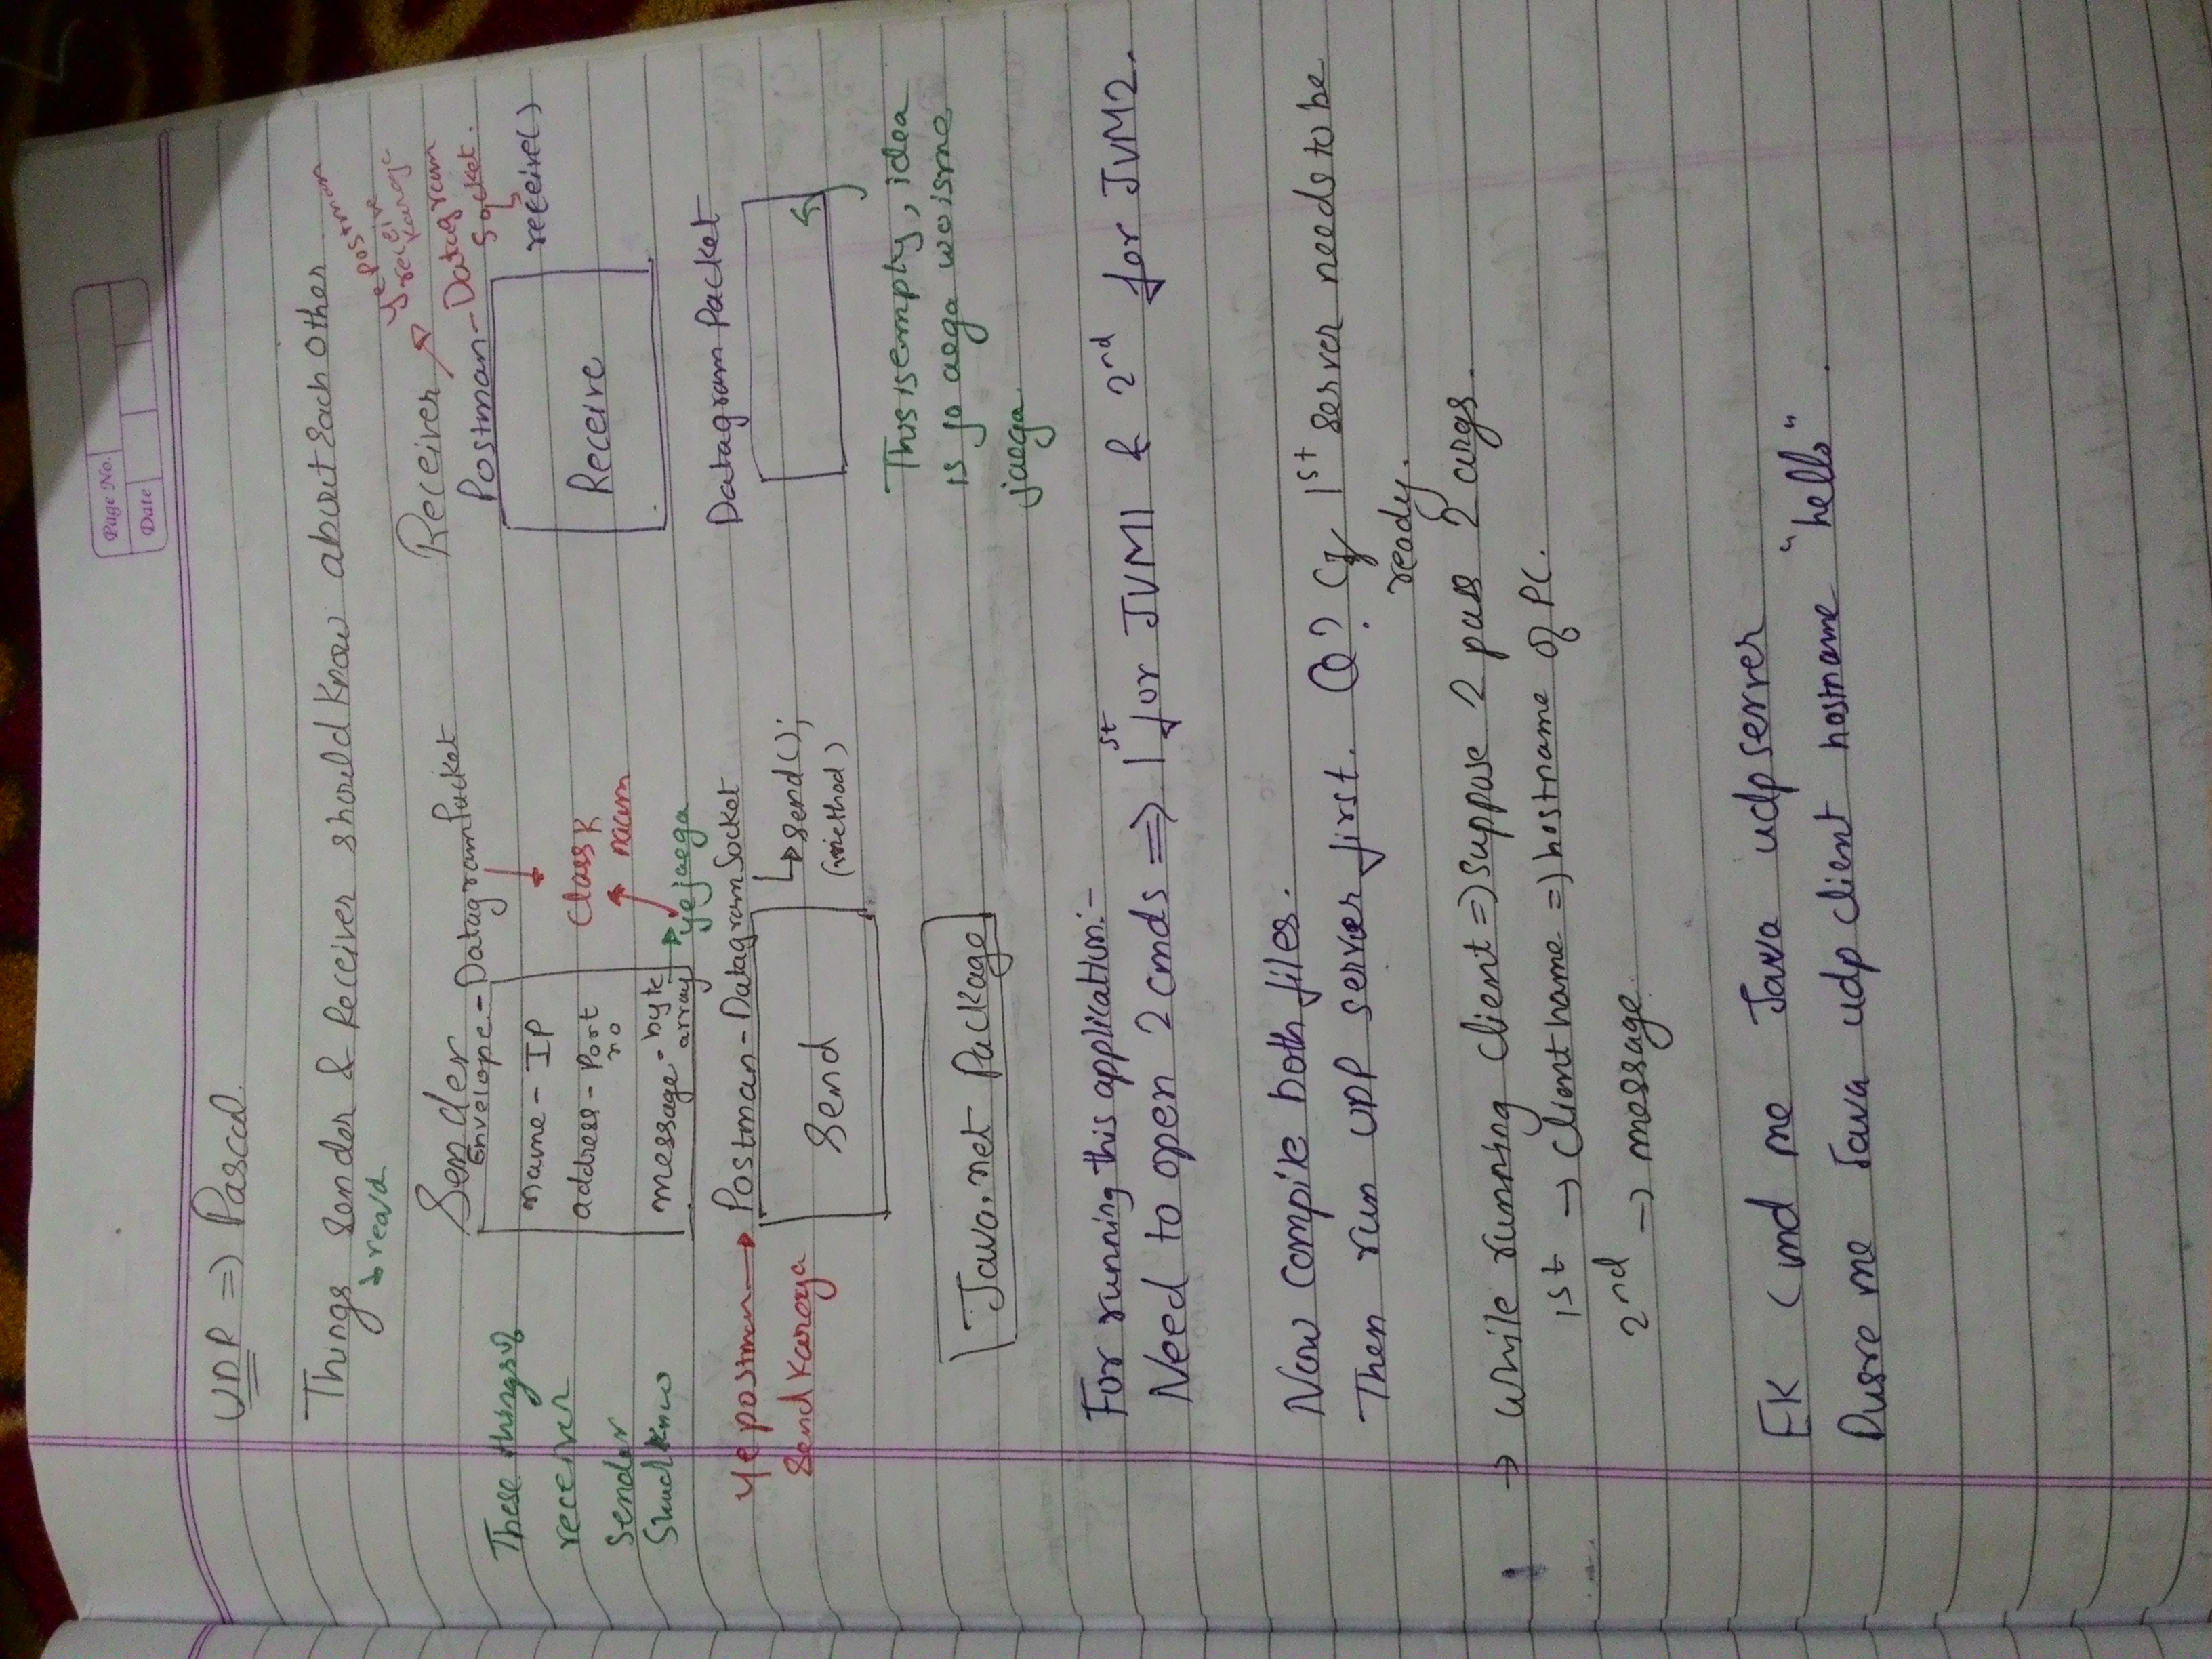 Page No.
Date
UDP => Pascal.
Things Sender & Receiver should know about Each Other
Sender
Envelope - DatagramPacket
These things of
receiver
Sender
name - IP
address - Port
no
message - byte
array
ye jaega
Class k
naam
Ye postman
Send Karega
Postman - Datagram Socket
Send
send();
(method)
Receiver
ye postman
receive
karega
Postman - Datagram
Socket.
receive()
Receive
Datagram Packet
This is empty, idea
is jo aega wo isme
jaega.
Java.net Package
For running this application:-
Need to open 2 cmds => 1st for JVM1 & 2nd for JVM2.
Now compile both files.
Then run UDP server first. Q? Cz 1st server needs to be
ready.
-> While running client => suppose 2 pass 2 args.
1st -> Client name => hostname of PC.
2nd -> message.
EK Cmd me Java udpserver
Dusre me Java udp client hostname "hello".